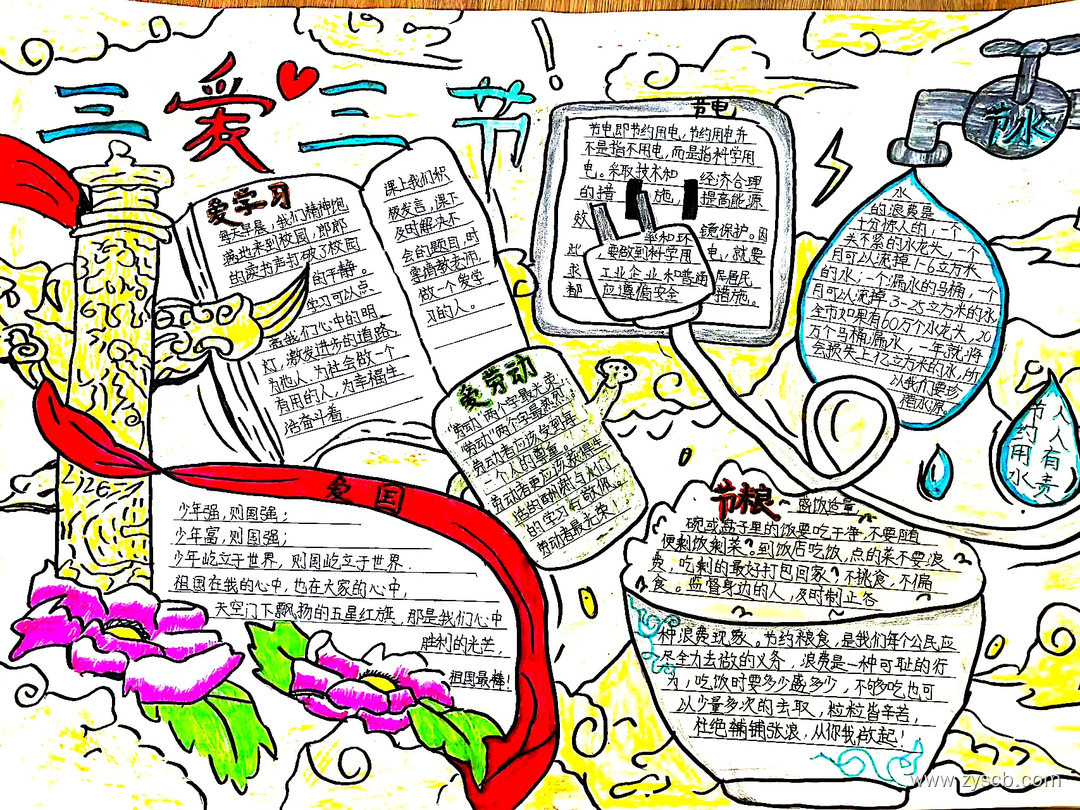 三爱三节
爱学习
每天早晨，我们精神饱
满地来到校园，郎郎
的读书声打破了校园
的干静。
学习可以点
亮我们心中的明
灯，激发进步的道路，
为他人，为社会做一个
有用的人，为幸福生
活奋斗着
课上我们积
极发言，课下
及时解决不
会的题目，时
要请教老师，
做一个爱学
习的人。
节电
节电即节约用电，节约用电并
不是指不用电，而是指科学用
电。采取技术和 经济合理
的措 施， 提高能源
效
率和环 镜保护。因
此 ，要做到科学用 电，就要
求 工业企业和普通 居民
都 应遵偱安全 措施。
节水
水
的浪费是
十分惊人的，一个
关不紧的水龙头，一个
月可以流掉1-6立方米
的水；一个漏水的马桶，一个
月可以流掉3-25立方米的水
全市如果有60万个水龙头，20
万个马桶漏水，一年就将
会损失上亿立方米的水，所
以我们要珍
惜水源。
人人有责
节约用水
爱劳动
"劳动"两个字最光荣，
"劳动"两个字最
劳动者应该受到每
一个人的尊重，
劳动者更应该获得生
活的酬然与人们
的学习与敬佩。
劳动者最光荣！
爱国
少年强，则国强；
少年富，则国强；
少年屹立于世界，则国屹立于世界．
祖国在我的心中，也在大家的心中，
天空门下飘扬的五星红旗，那是我们心中
胜利的光芒，
祖国最棒！
节粮
盛饭适量
碗或盘子里的饭要吃干净，不要随
便剩饭剩菜？到饭店吃饭，点的菜不要浪
费，吃剩的最好打包回家？不挑食，不偏
食。监督身边的人，及时制止各
种浪费现象。节约粮食，是我们每个公民应
尽全力去做的义务，浪费是一种可耻的行
为，吃饭时要多少盛多少，不够吃也可
以少量多次的去取，粒粒皆辛苦，
杜绝铺铺张浪，从你我做起！
www.zyscb.com